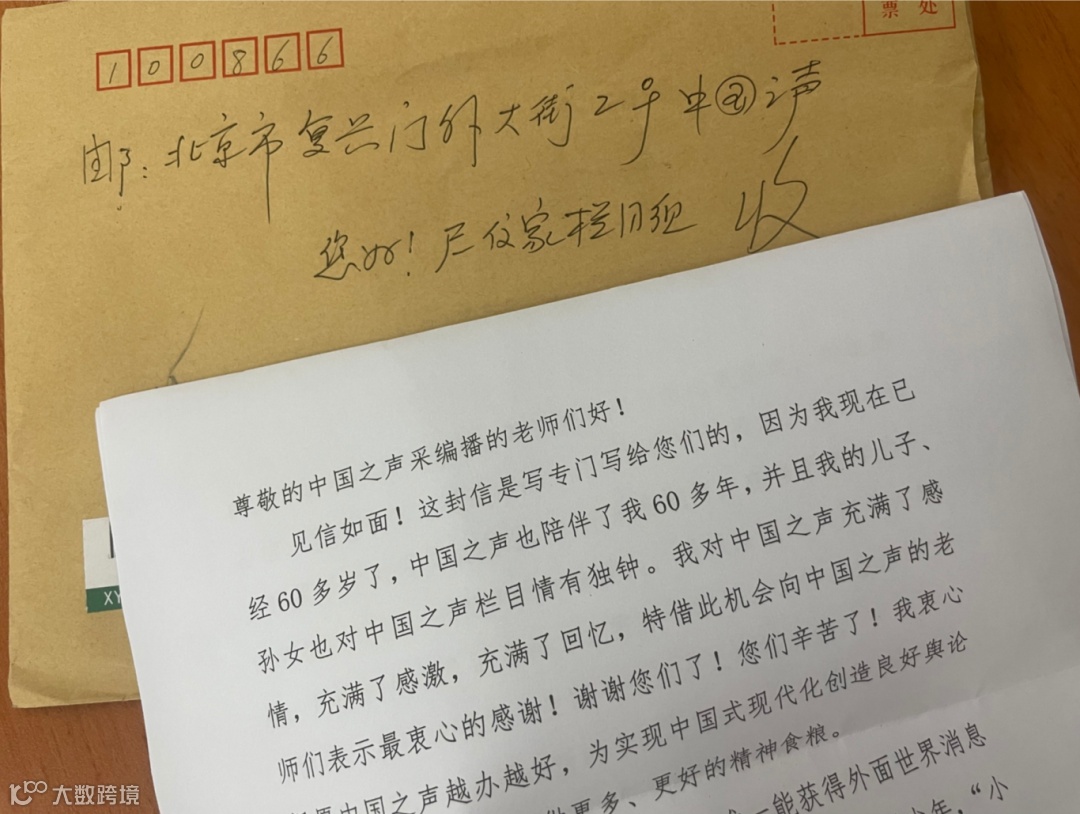 票处
100866
邮：北京市复兴门外大街2号中国之声
您好！尼佼家栏目组 收
尊敬的中国之声采编播的老师们好！
见信如面！这封信是写专门写给您们的，因为我现在已
经60多岁了，中国之声也陪伴了我60多年，并且我的儿子、
孙女也对中国之声栏目情有独钟。我对中国之声充满了感
情，充满了感激，充满了回忆，特借此机会向中国之声的老
师们表示最衷心的感谢！谢谢您们了！您们辛苦了！我衷心
中国之声越办越好，为实现中国式现代化创造良好舆论
更多、更好的精神食粮。
一能获得外面世界消息
少年，“小
XY
大数跨境